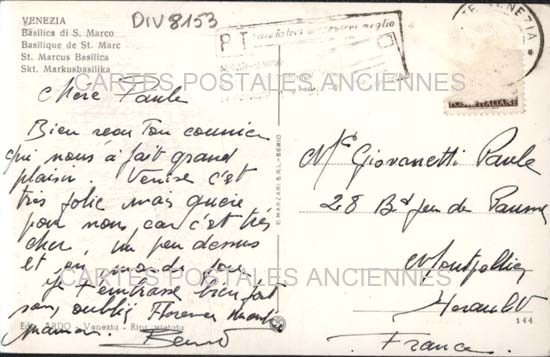 VENEZIA
Basilica di S. Marco
Basilique de St. Marc
St. Marcus Basilica
Skt. Markusbasilika
DIV8153
P.T.
VENEZIA
POSTE ITALIANE
CARTES POSTALES ANCIENNES
Chère Paule
Bien reçu Ton courrier
qui nous a fait grand
plaisir. Venise c'est
très jolie mais guère
pour nous car c'est très
cher, un peu dessus
et en
je t'embrasse bien fort
sans oublier Florence
maman. 
E. MARZARI S.R.L. - SCHIO
Giovanetti Paule
28 Bd Jeu de Paume
Montpellier
Herault
France
CARTES POSTALES ANCIENNES
ARDO - Venezia - Ripr. vietata
144